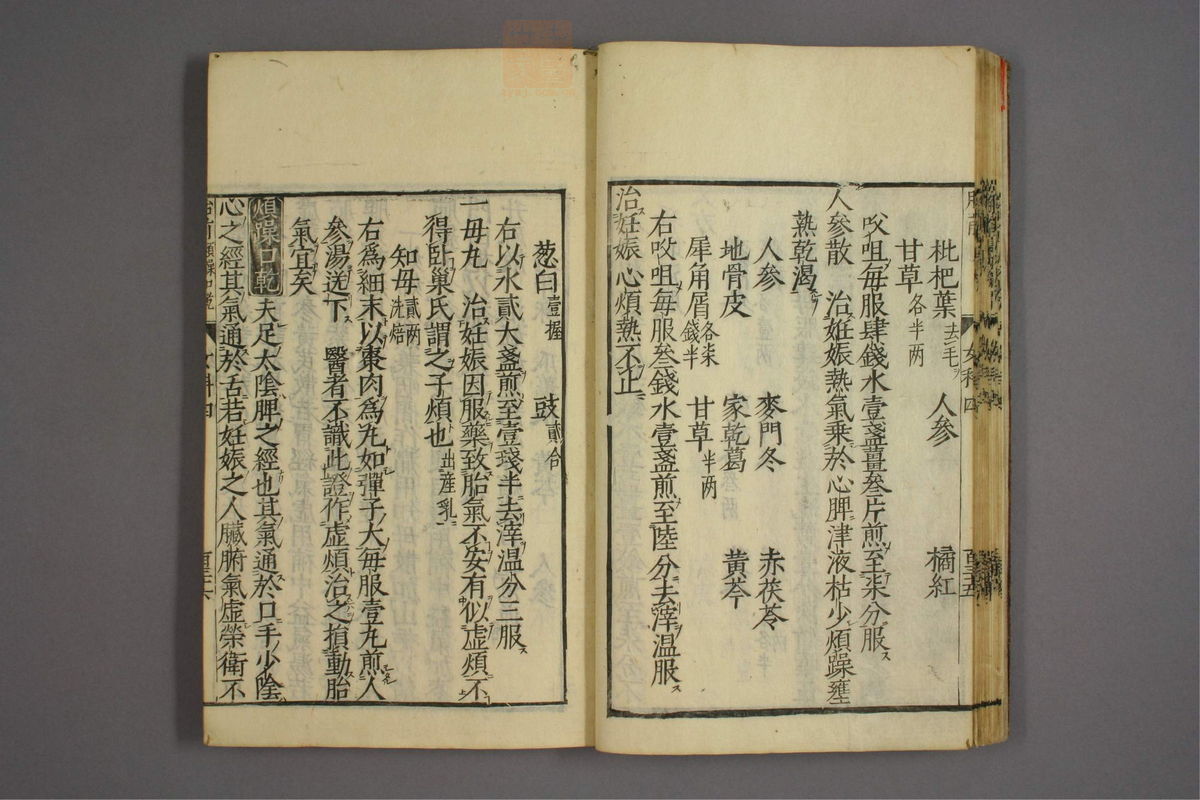 枇杷葉去毛 人參 橘紅
甘草各半两
㕮咀毎服肆錢水壹盞薑叁片煎至柒分服
人參散 治妊娠熱氣乗於心脾津液枯少煩躁壅
熱乾渇
人參 麥門冬 赤茯苓
地骨皮 家乾葛 黄芩
犀角屑各柒錢半 甘草半两
右㕮咀毎服叁錢水壹盞煎至陸分去滓温服
治妊娠心煩熱不止
葱白壹握 豉貳合
右以水貳大盞煎至壹琖半去滓温分三服
一毋丸 治妊娠因服藥致胎氣不安有似虚煩不
得卧巢氏謂之子煩也出産乳
知毋貳两洗焙
右為細末以棗肉為丸如彈子大毎服壹丸煎人
參湯送下 醫者不識此證作虚煩治之損動胎
氣宜矣
煩躁口乾 夫足太陰脾之經也其氣通於口手少陰
心之經其氣通於舌若妊娠之人臓腑氣虚榮衛不
女科四